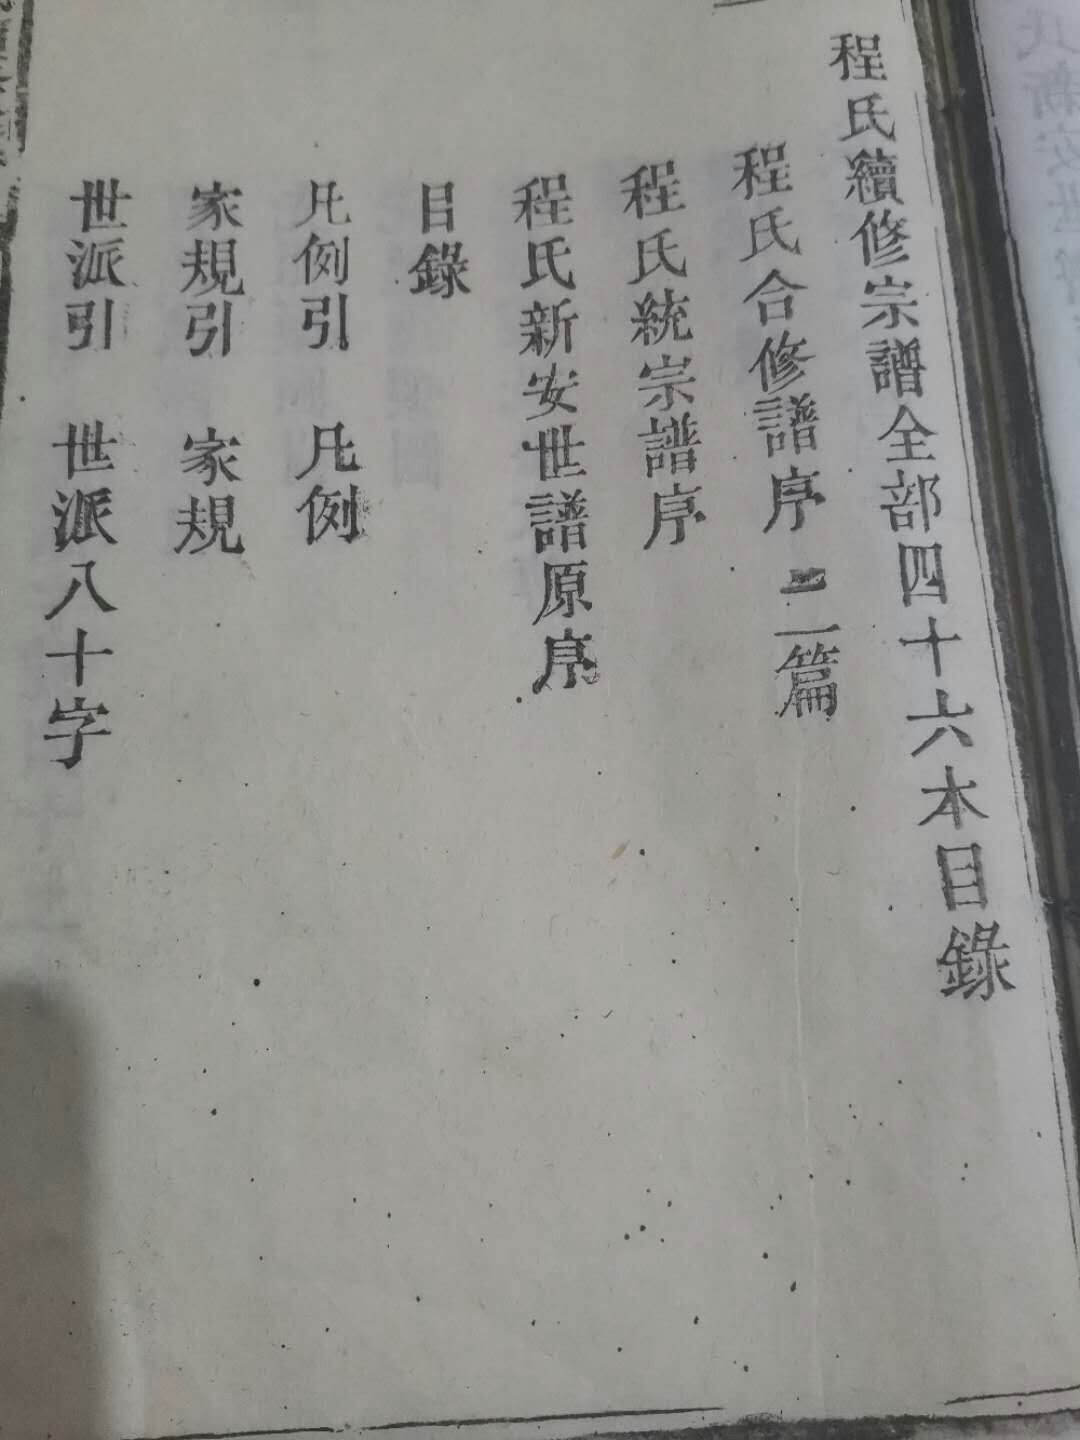 程氏續修宗譜全部四十六本目錄
程氏合修譜序 二篇
程氏統宗譜序
程氏新安世譜原序
目錄
凡例引 凡例
家規引 家規
世派引 世派八十字